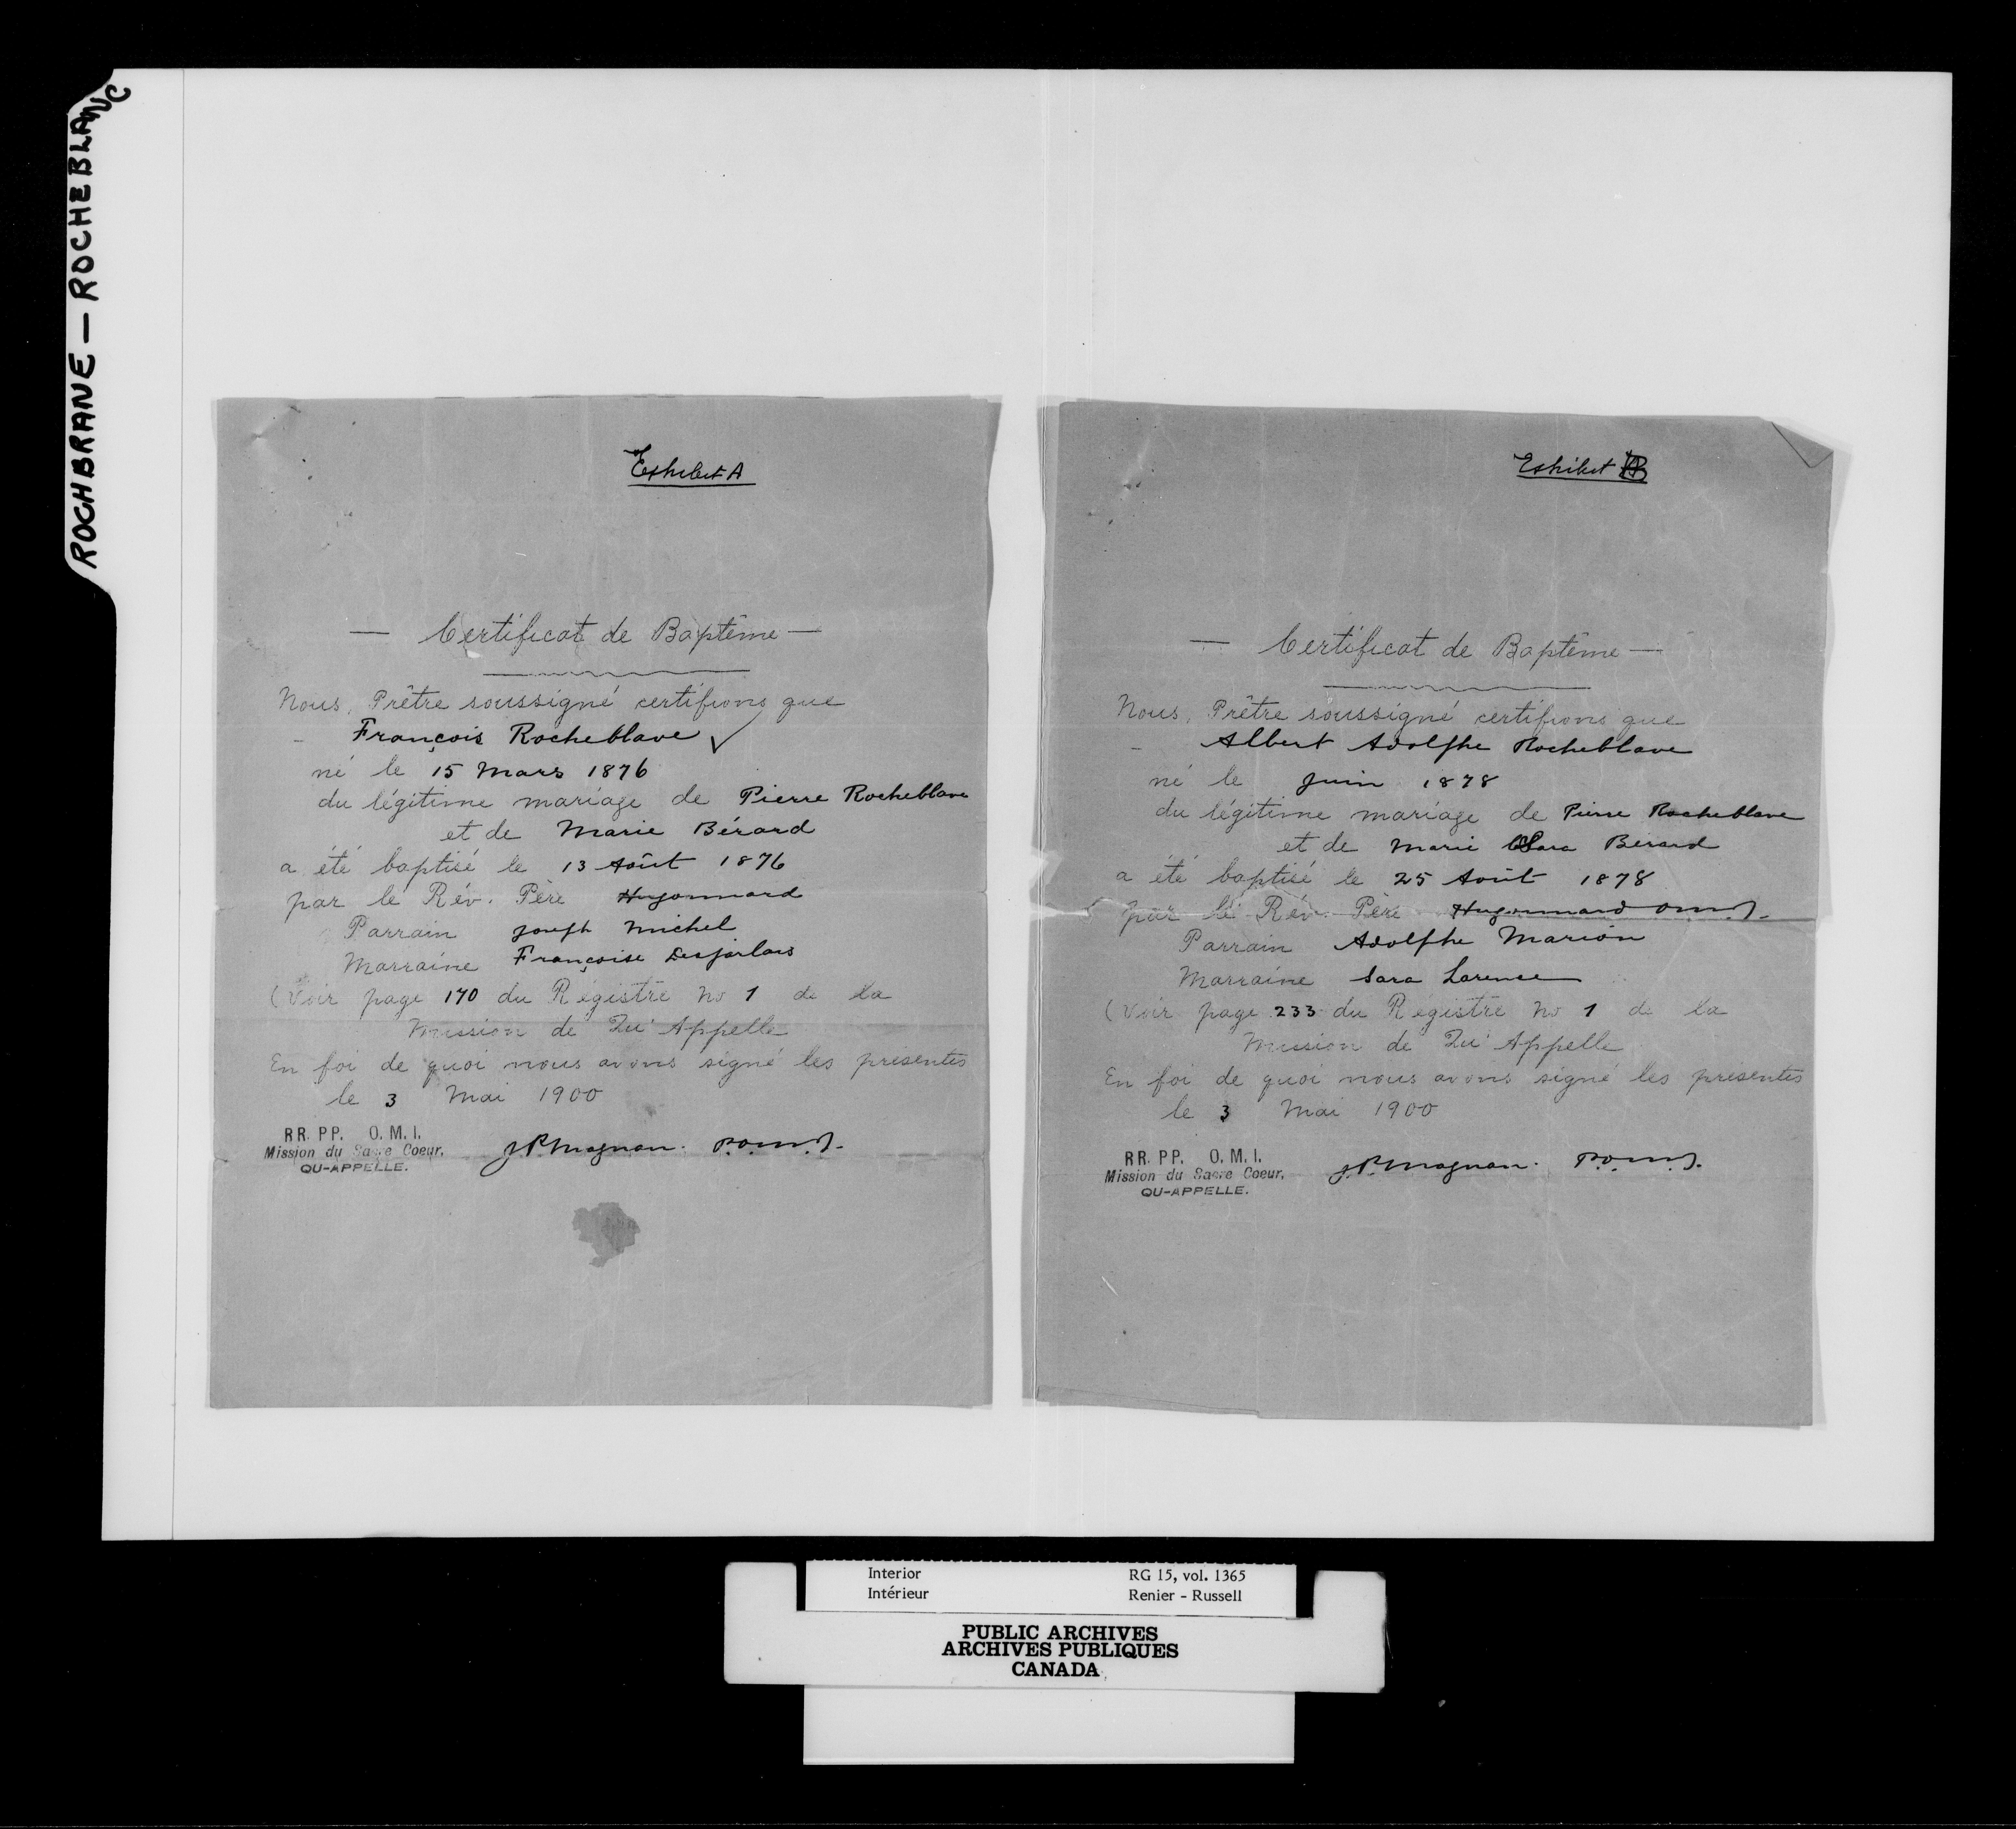 ROCHBRANE — ROCHEBLANC
Exhibit A
— Certificat de Baptême —
Nous, Prêtre soussigné certifions que
François Rocheblave ✓
né le 15 Mars 1876
du légitime mariage de Pierre Rocheblave
et de Marie Bérard
a été baptisé le 13 Août 1876
par le Rév. Père Hugonnard
Parrain Joseph Michel
Marraine Françoise Desjarlais
(Voir page 170 du Régistre No 1 de la
Mission de Qu'Appelle
En foi de quoi nous avons signé les présentes
le 3 Mai 1900
RR. PP. O. M. I.
Mission du Sacre Coeur,
QU-APPELLE.
J.P. Magnan. P.O.M.I.
Exhibit B
— Certificat de Baptême —
Nous, Prêtre soussigné certifions que
Albert Adolphe Rocheblave
né le Juin 1878
du légitime mariage de Pierre Rocheblave
et de Marie Bérard
a été baptisé le 25 Août 1878
par le Rév. Père Hugonnard O.M.I.
Parrain Adolphe Marion
Marraine Sara Larence
(Voir page 233 du Régistre No 1 de la
Mission de Qu'Appelle
En foi de quoi nous avons signé les présentes
le 3 Mai 1900
RR. PP. O. M. I.
Mission du Sacre Coeur,
QU-APPELLE.
J.P. Magnan. P.O.M.I.
Interior RG 15, vol. 1365
Intérieur Renier - Russell
PUBLIC ARCHIVES
ARCHIVES PUBLIQUES
CANADA